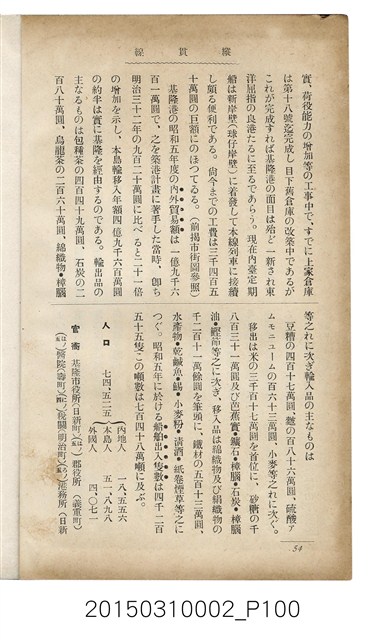 線貫縱
實、荷役能力の增加等の工事中で、すでに上家倉庫
は第十八號迄完成し目下舊倉庫の改築中であるが
これが完成すれば基隆港の面目は殆ど一新され東
洋屈指の良港たるに至るであらう。現在內臺定期
船は新岸壁(球仔岸壁)に着發して本線列車に接續
し頗る便利である。尙今までの工費は三千四百五
十萬圓の巨額にのぼつてゐる。(前揭市街圖參照)
基隆港の昭和五年度の內外貿易額は一億九千六
百一萬圓で、之を築港計畫に著手した當時、卽ち
明治三十二年の九百二十萬圓に比べると二十一倍
の增加を示し、本島輸移入年額四億九千六百萬圓
の約半は實に基隆を經由するのである。輸出品の
主なるものは包種茶の四百四十九萬圓、石炭の二
百八十萬圓、烏龍茶の二百六十萬圓、綿織物・樟腦
等之れに次ぎ輸入品の主なるものは
豆糟の四百十七萬圓、麵の百八十六萬圓、硫酸ア
ムモニユームの百六十三萬圓、小麥等之れに次ぐ。
移出は米の三千百十七萬圓を首位に、砂糖の千
八百三十一萬圓及び芭蕉實・鑛石・樟腦・石炭・樟腦
油・鰹節等之に次ぎ、移入品は綿織物及び絹織物の
千二百十一萬餘圓を筆頭に、鐵材の五百十三萬圓、
水產物・乾鹹魚・鯣・小麥粉・淸酒・紙卷煙草等之に
つぐ。昭和五年に於ける船舶出入隻數は四千二百
五十五隻この噸數は七百四十八萬噸に及ぶ。
人口 七四、五二五
內地人 一八、五五六
本島人 五一、八九八
外國人 四、〇七一
官衙 基隆市役所(日新町)郡役所(義重町)
醫院(壽町)稅關(明治町)港務所(日新
54
20150310002_P100